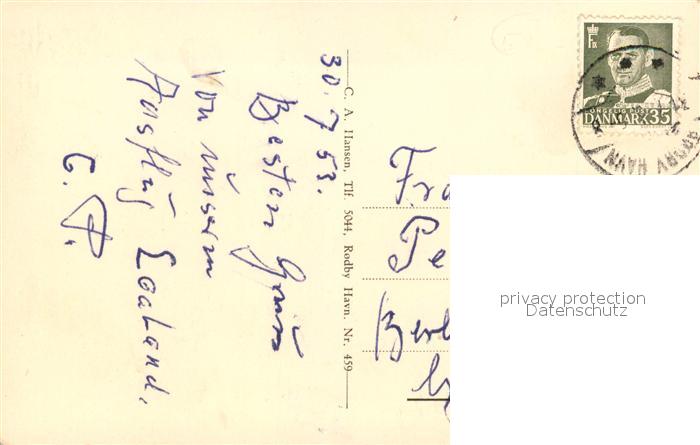 30.7.53.
Besten Gruß
von unserem
Ausflug Laaland.
C. A. Hansen, Tlf. 5044, Rødby Havn. Nr. 459
DANMARK 35
Fra
Pe
Berl
privacy protection
Datenschutz